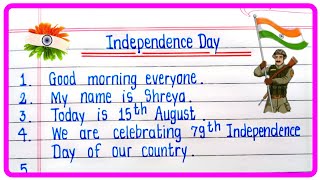 Independence Day
1. Good morning everyone.
2. My name is Shreya.
3. Today is 15th August.
4. We are celebrating 79th Independence
Day of our country.
5